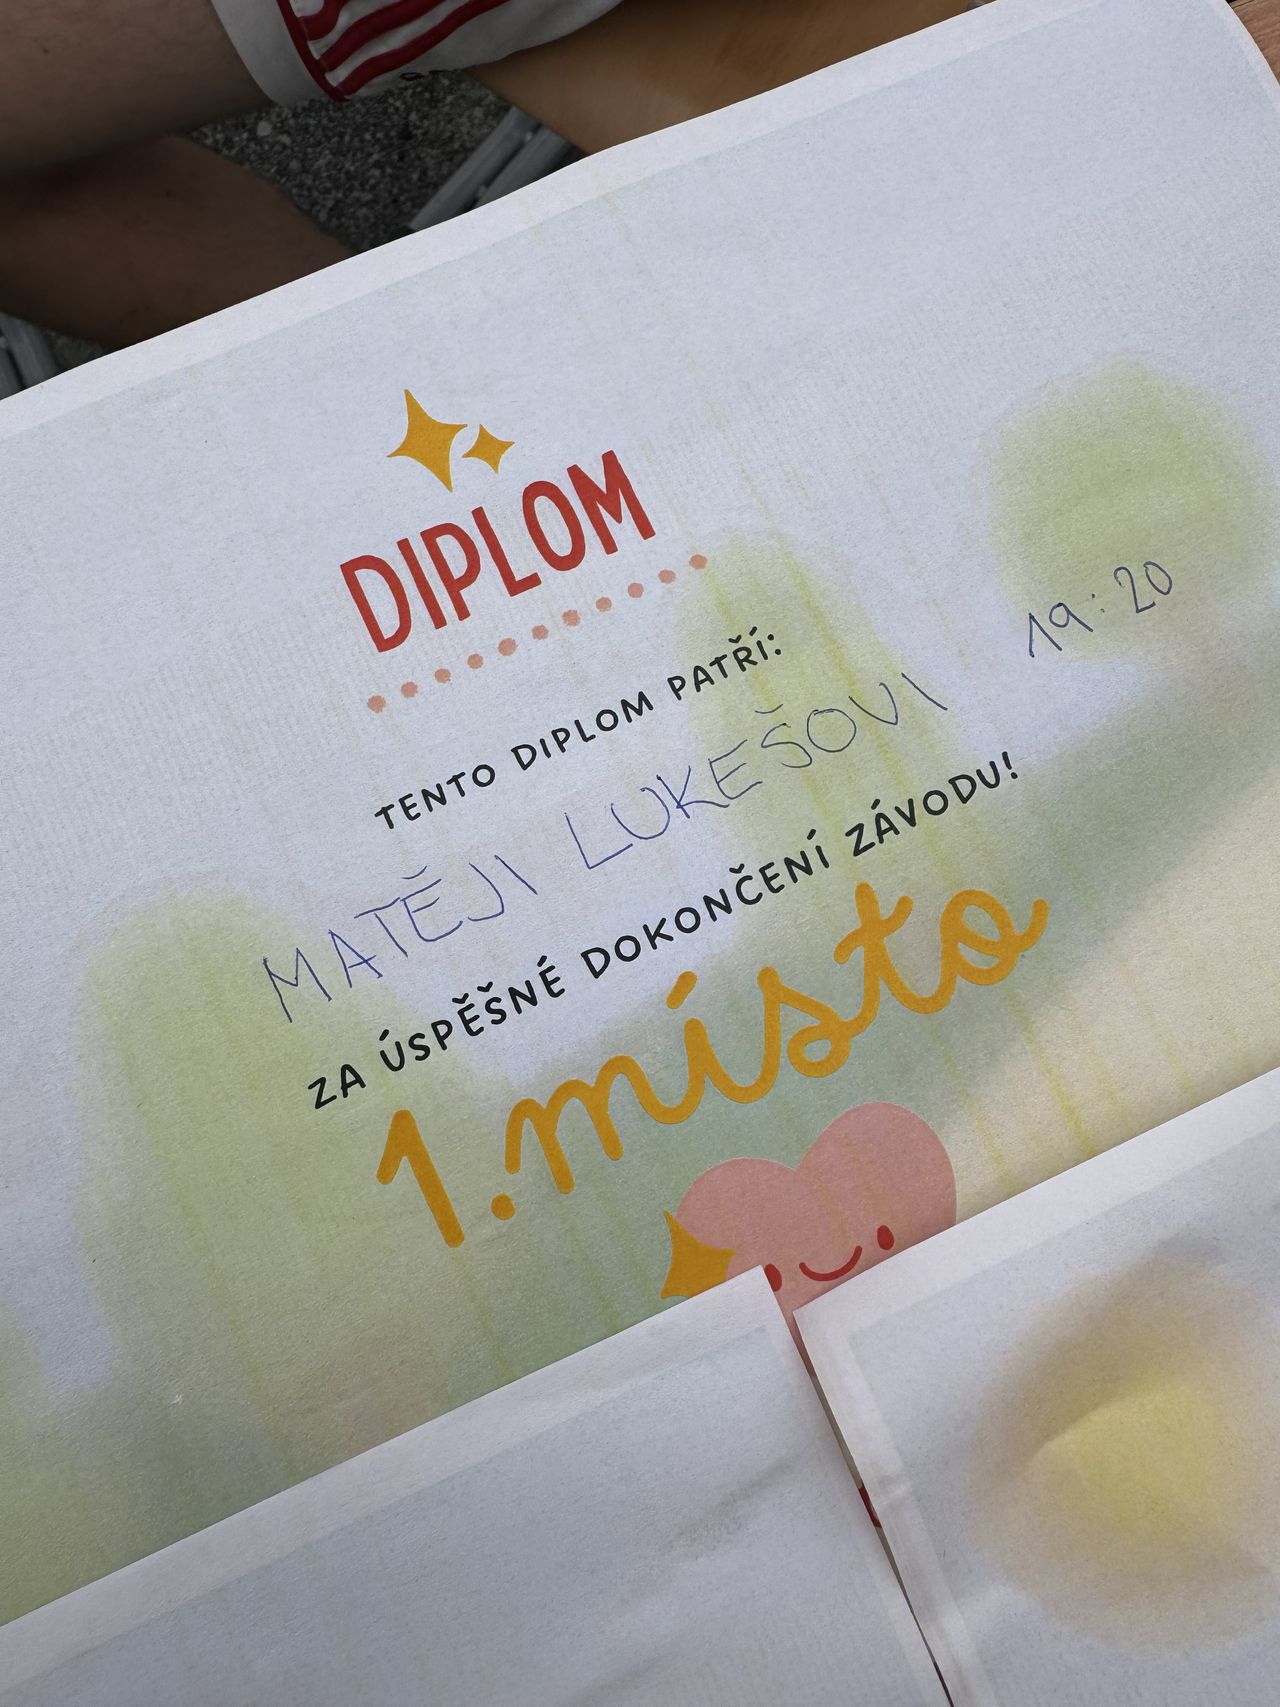 DIPLOM
TENTO DIPLOM PATŘÍ:
MATĚJI LUKEŠOVI 19:20
ZA ÚSPĚŠNÉ DOKONČENÍ ZÁVODU!
1. místo